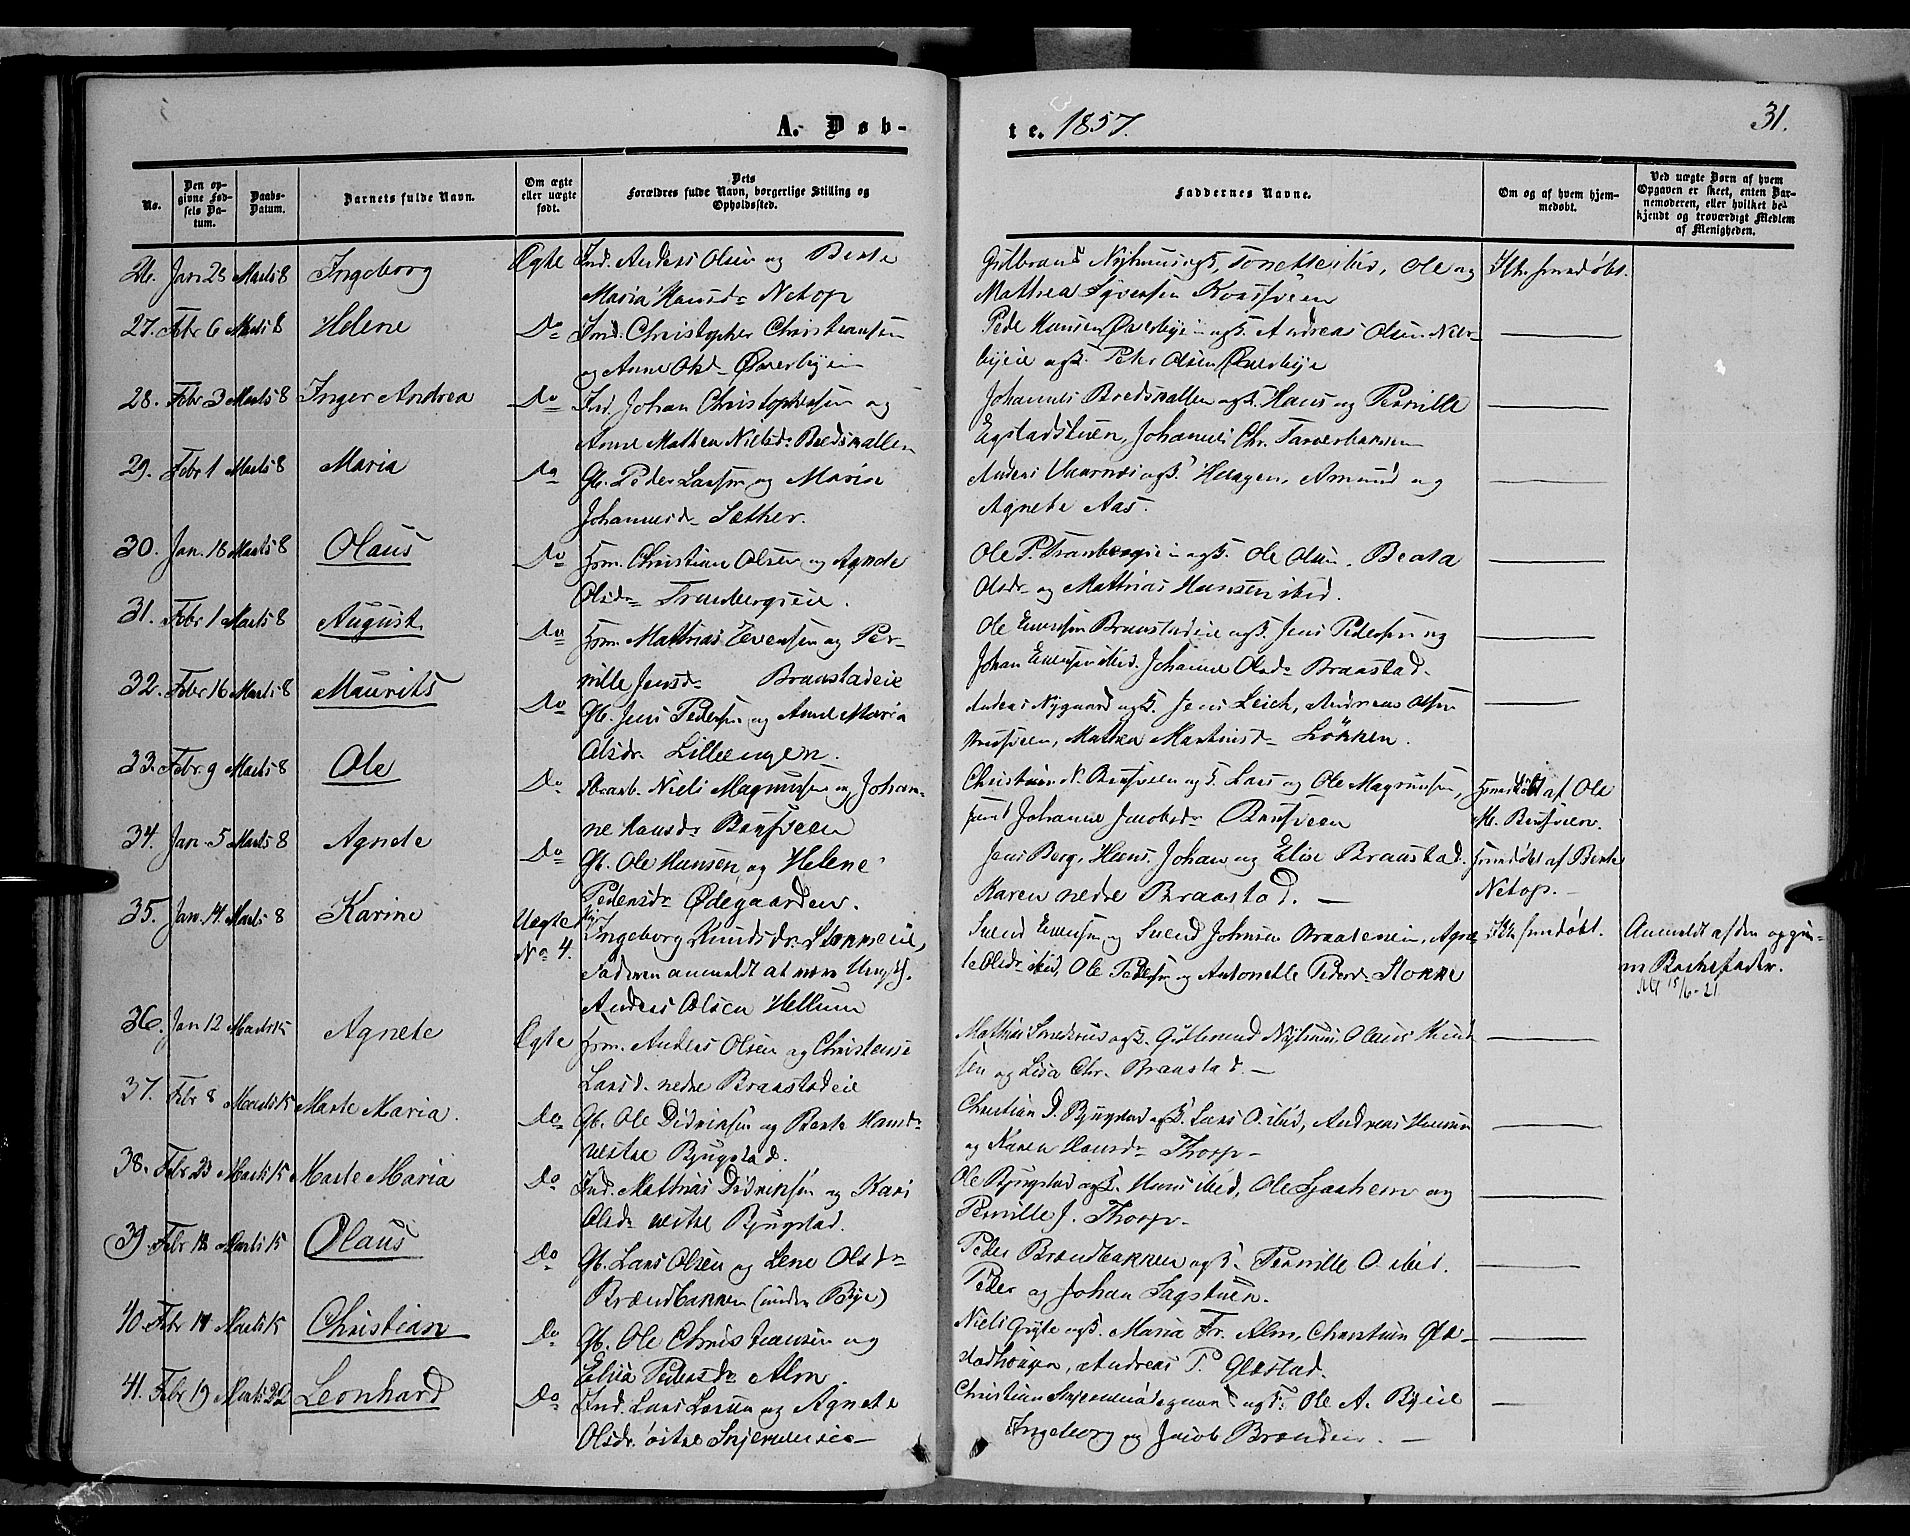 A. Døb-
te. 1857.
31.
No.
Den opgivne Fødsels Datum.
Daabs-Datum.
Barnets fulde Navn.
Om ægte eller uægte født.
Dets Forældres fulde Navn, borgerlige Stilling og Opholdssted.
Faddernes Navne.
Om og af hvem hjemmedøbt.
Ved uægte Børn af hvem Opgaven er skeet, enten Barnemoderen, eller hvilket bekjendt og troværdigt Medlem af Menigheden.
26. Jan 28 Marts 8 Ingeborg Ægte Ind. Anders Olsen og Berte
Maria Hansdr Netop
Ole og
Mathea Syversen
27. Febr 6 Marts 8 Helene Do Ind. Christopher Christiansen
og Anne Olsd. Øverbyein
Peder Hansen Øverbyein og K. Andrea Olsen
og K. Peter Olsen Øverbye
28. Febr 3 Marts 8 Inger Andrea Do Ind. Johan Christophersen og
Anne Mathea Nielsdr
Johannes og K. Hans og Pernille
Egstadstuen, Johannes Chr.
29. Febr 1 Marts 8 Maria Do Gb. Peder Larsen og Maria
Johannesdr Sæther.
Anders og K. Haagen, Amund og
Agnete Aas.
30. Jan. 18 Marts 8 Olaus Do Hsm. Christian Olsen og Agnete
Olsdr Tranbergseie.
Ole P. Tranbergseie og K. Ole Olsen, Beata
Olsdr og Mathias Hansen ibid.
31. Febr 1 Marts 8 August Do Hsm. Mathias Evensen og Per-
nille Jensdr Braastadeie
Ole Evensen Braastadeie og K. Jens Pedersen og
Johan Evensen ibid. Johanne Olsdr Braastad.
32. Febr 16 Marts 8 Maurits Do Gb. Jens Pedersen og Anne Maria
Olsdr. Lilleengen.
Anders Nygaard og K. Jens Leich, Andreas Olsen
Mathea Martinsdr Løkken.
33. Febr. 9 Marts 8 Ole Do Niels Magnussen og Johan-
ne Hansdr Brusveen
Christian N. Brusveen og K. Lars og Ole Magnussen,
Johanne Jacobsdr Brusveen
Hjemdøbt af Ole
M. Brusveen.
34. Jan. 5 Marts 8 Agnete Do Gb. Ole Hansen og Helene
Pedersdr Ødegaarden.
Jens Berg, Hans, Johan og Elise Braastad.
Karen nedre Braastad. —
Hjemdøbt af Berte
Netop. —
35. Jan. 14. Marts 8 Karine Uægte
No 4.
Ingeborg Knudsdr Stokkeeie,
Faderen anmeldt at være Ungk.
Anders Olsen Hellum
Svend Evensen og Svend Johnsen Agne-
te Olsdr ibid, Ole Pedersen og Antonette Pedersdr Stokke
Ikke hjemdøbt.
Anmeldt af den opgiv-
ne Barnefader.
15/6-21
36. Jan 12 Marts 15 Agnete Ægte Hsm. Anders Olsen og Christense
Larsd. nedre Braastadeie
Mathias og K. Gulbrand Olaus Knud-
sen og Lisa Chr. Braastad. —
37. Febr 8 Marts 15 Marte Maria. Do Gb. Ole Didriksen og Berte Hansdr
vestre Bjugstad.
Christian D. Bjugstad og K. Lars O. ibid, Andreas Hansen
og Karen Hansdr Thorp—
38. Febr 23 Marts 15 Marte Maria Do Ind. Mathias Didriksen og Kari
Olsdr vestre Bjugstad.
Ole Bjugstad og K. Hans ibid, Ole og
Pernille J. Thorp—
39. Febr 18 Marts 15 Olaus Do Gb. Lars Olsen og Lene Olsdr
Brændbakken (under Bye)
Peder Brændbakken og K. Pernille O. ibid.
Peder og Johan Sagstuen.
40. Febr 14 Marts 15 Christian Do Gb. Ole Christiansen og
Elisa Pedersdr Alm.
Niels og K. Maria Fr. Alm, Christian Glæ-
Andreas P. Glæstad.
41. Febr 19 Marts 22 Leonhard Do Ind. Lars Larsen og Agnete
Olsdr. østre
Christian og K. Ole A. Byeie
Ingeborg og Jacob Brænden. —